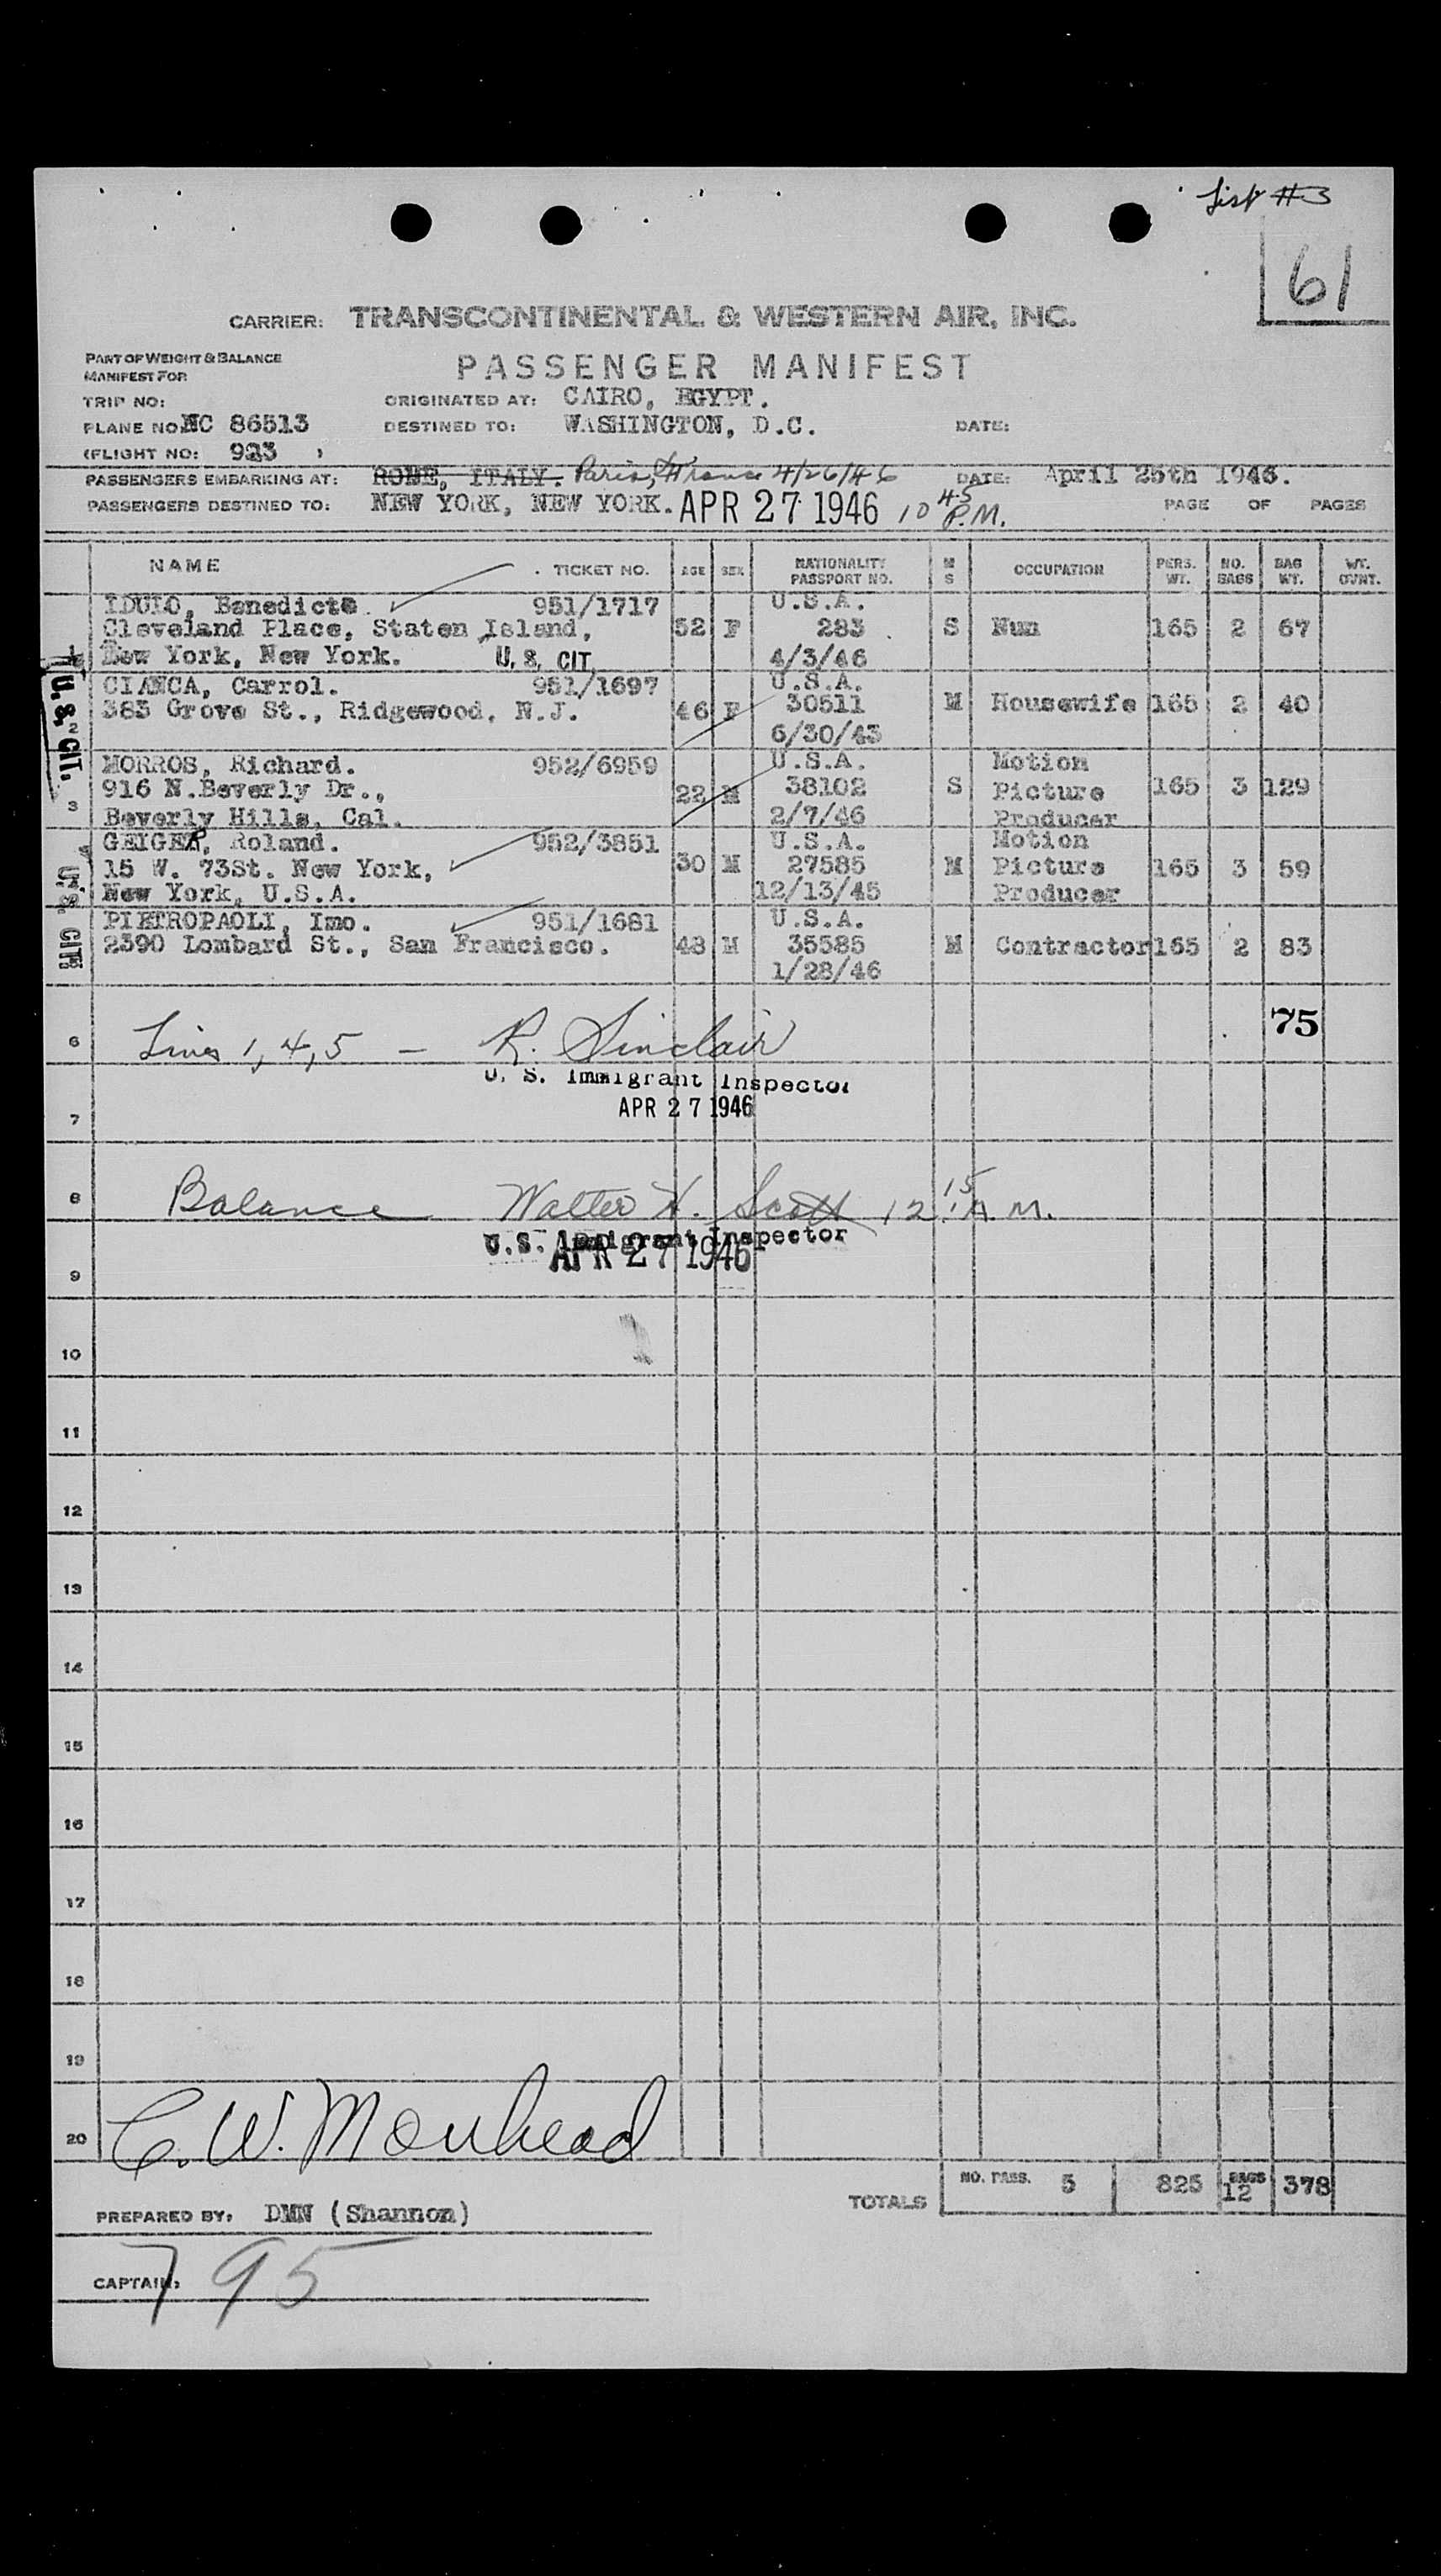 List #3
61
CARRIER: TRANSCONTINENTAL & WESTERN AIR, INC.
PART OF WEIGHT & BALANCE
MANIFEST FOR
PASSENGER MANIFEST
TRIP NO: ORIGINATED AT: CAIRO, EGYPT.
PLANE NO: NC 86513 DESTINED TO: WASHINGTON, D.C. DATE:
(FLIGHT NO: 923 )
PASSENGERS EMBARKING AT: ROME, ITALY. Paris, France 4/26/46 DATE: April 25th 1946.
PASSENGERS DESTINED TO: NEW YORK, NEW YORK. APR 27 1946 10 45 P.M. PAGE OF PAGES
NAME TICKET NO. AGE SEX NATIONALITY PASSPORT NO. M S OCCUPATION PERS. WT. NO. BAGS BAG WT. WT. OVNT.
Benedicte. 951/1717 U.S.A.
Cleveland Place, Staten Island, 52 F 283 S Nun 165 2 67
New York, New York. U.S. CIT. 4/3/46
U.S. CIT.
CIANCA, Carrol. 951/1697 U.S.A.
2 383 Grove St., Ridgewood, N.J. 46 F 30511 M Housewife 165 2 40
6/30/43
MORROS, Richard. 952/6959 U.S.A. Motion
916 N.Beverly Dr., 22 M 38102 S Picture 165 3 129
3 Beverly Hills, Cal. 2/7/46 Producer
GEIGER, Roland. 952/3851 U.S.A. Motion
15 W. 73St. New York, 30 M 27585 M Picture 165 3 59
New York, U.S.A. 12/13/45 Producer
U.S. CIT.
PIETROPAOLI, Imo. 951/1681 U.S.A.
2390 Lombard St., San Francisco. 48 M 35585 M Contractor 165 2 83
1/28/46
75
6 Lines 1, 4, 5 - R. Sinclair
U. S. Immigrant Inspector
7 APR 27 1946
8 Balance Walter H. Scott 12:15 A.M.
U.S. Immigrant Inspector
APR 27 1946
9
10
11
12
13
14
15
16
17
18
19
20 C. W.
TOTALS NO. PASS. 5 825 BAGS 12 378
PREPARED BY: DMN (Shannon)
CAPTAIN: 795